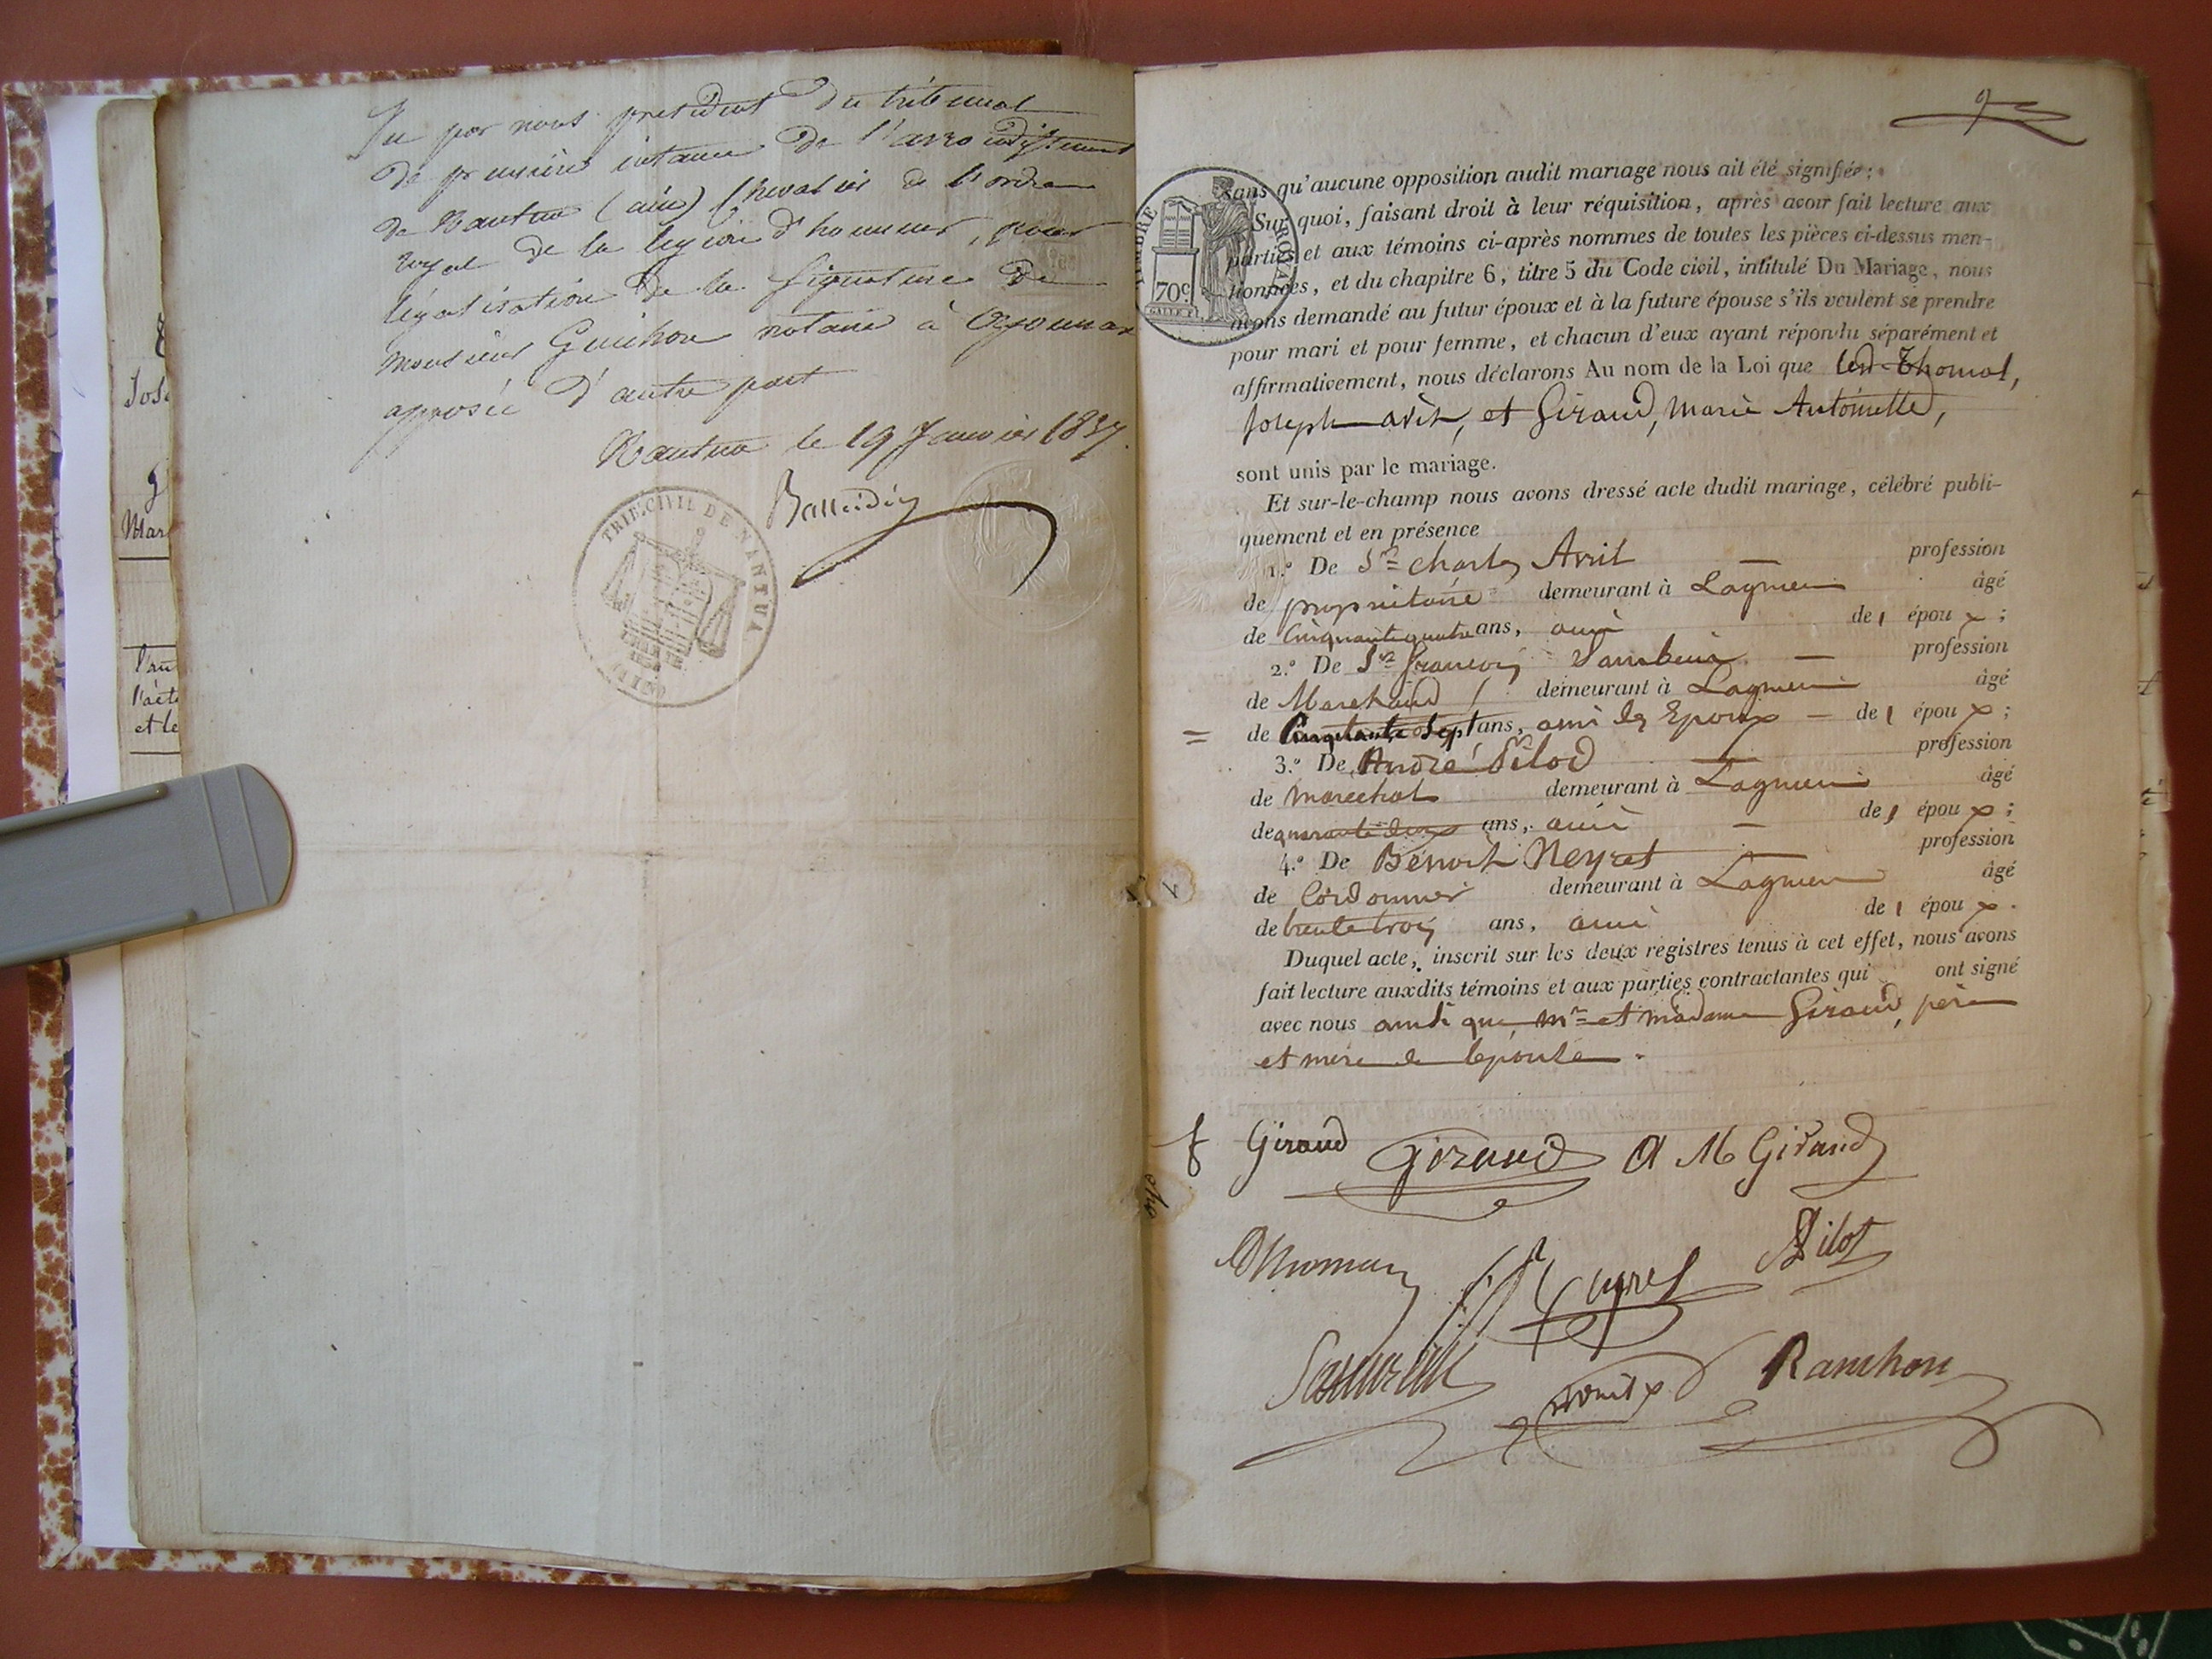 Vu par nous president du tribunal
de premiere intance de l'arrondissement
de Nantua (ain) Chevalier de l'ordre
royal de la legion d'honneur, pour
légalisation de la signature de
monsieur Guichon notaire à Oyonnax
apposée d'autre part
Nantua le 19 Janvier 1837.
TRIB. CIVIL DE NANTUA
(AIN)
Jos
Mar
l'au
l'acte
et le
TIMBRE ROYAL
70c
GALLE F.
sans qu'aucune opposition audit mariage nous ait été signifiée;
Sur quoi, faisant droit à leur réquisition, après avoir fait lecture aux
parties et aux témoins ci-après nommes de toutes les pièces ci-dessus men-
tionnées, et du chapitre 6, titre 5 du Code civil, intitulé Du Mariage, nous
avons demandé au futur époux et à la future épouse s'ils veulent se prendre
pour mari et pour femme, et chacun d'eux ayant répondu séparément et
affirmativement, nous déclarons Au nom de la Loi que les d. Thomas,
Joseph et Giraud, Marie Antoinette,
sont unis par le mariage.
Et sur-le-champ nous avons dressé acte dudit mariage, célébré publi-
quement et en présence
1.º De Sr Charles Avril — profession
de propriétaire demeurant à Lagnieu âgé
de Cinquante quatre ans, ami de l époux;
2.º De Sr francois Sambuin — profession
de Marchand demeurant à Lagnieu âgé
= de Cinquante Sept ans, ami des Epoux — de l époux;
3.º De André Pilod — profession
de marechal demeurant à Lagnieu âgé
de quarante deux ans, ami — de l époux;
4.º De Benoit Neyret — profession
de Cordonnier demeurant à Lagnieu âgé
de trente trois ans, ami de l époux.
Duquel acte, inscrit sur les deux registres tenus à cet effet, nous avons
fait lecture auxdits témoins et aux parties contractantes qui ont signé
avec nous ainsi que Mr et madame Giraud, père
et mère de l'épouse.
f Giraud Giraud A M Giraud
Thomas Neyret Pilot
Ranchon